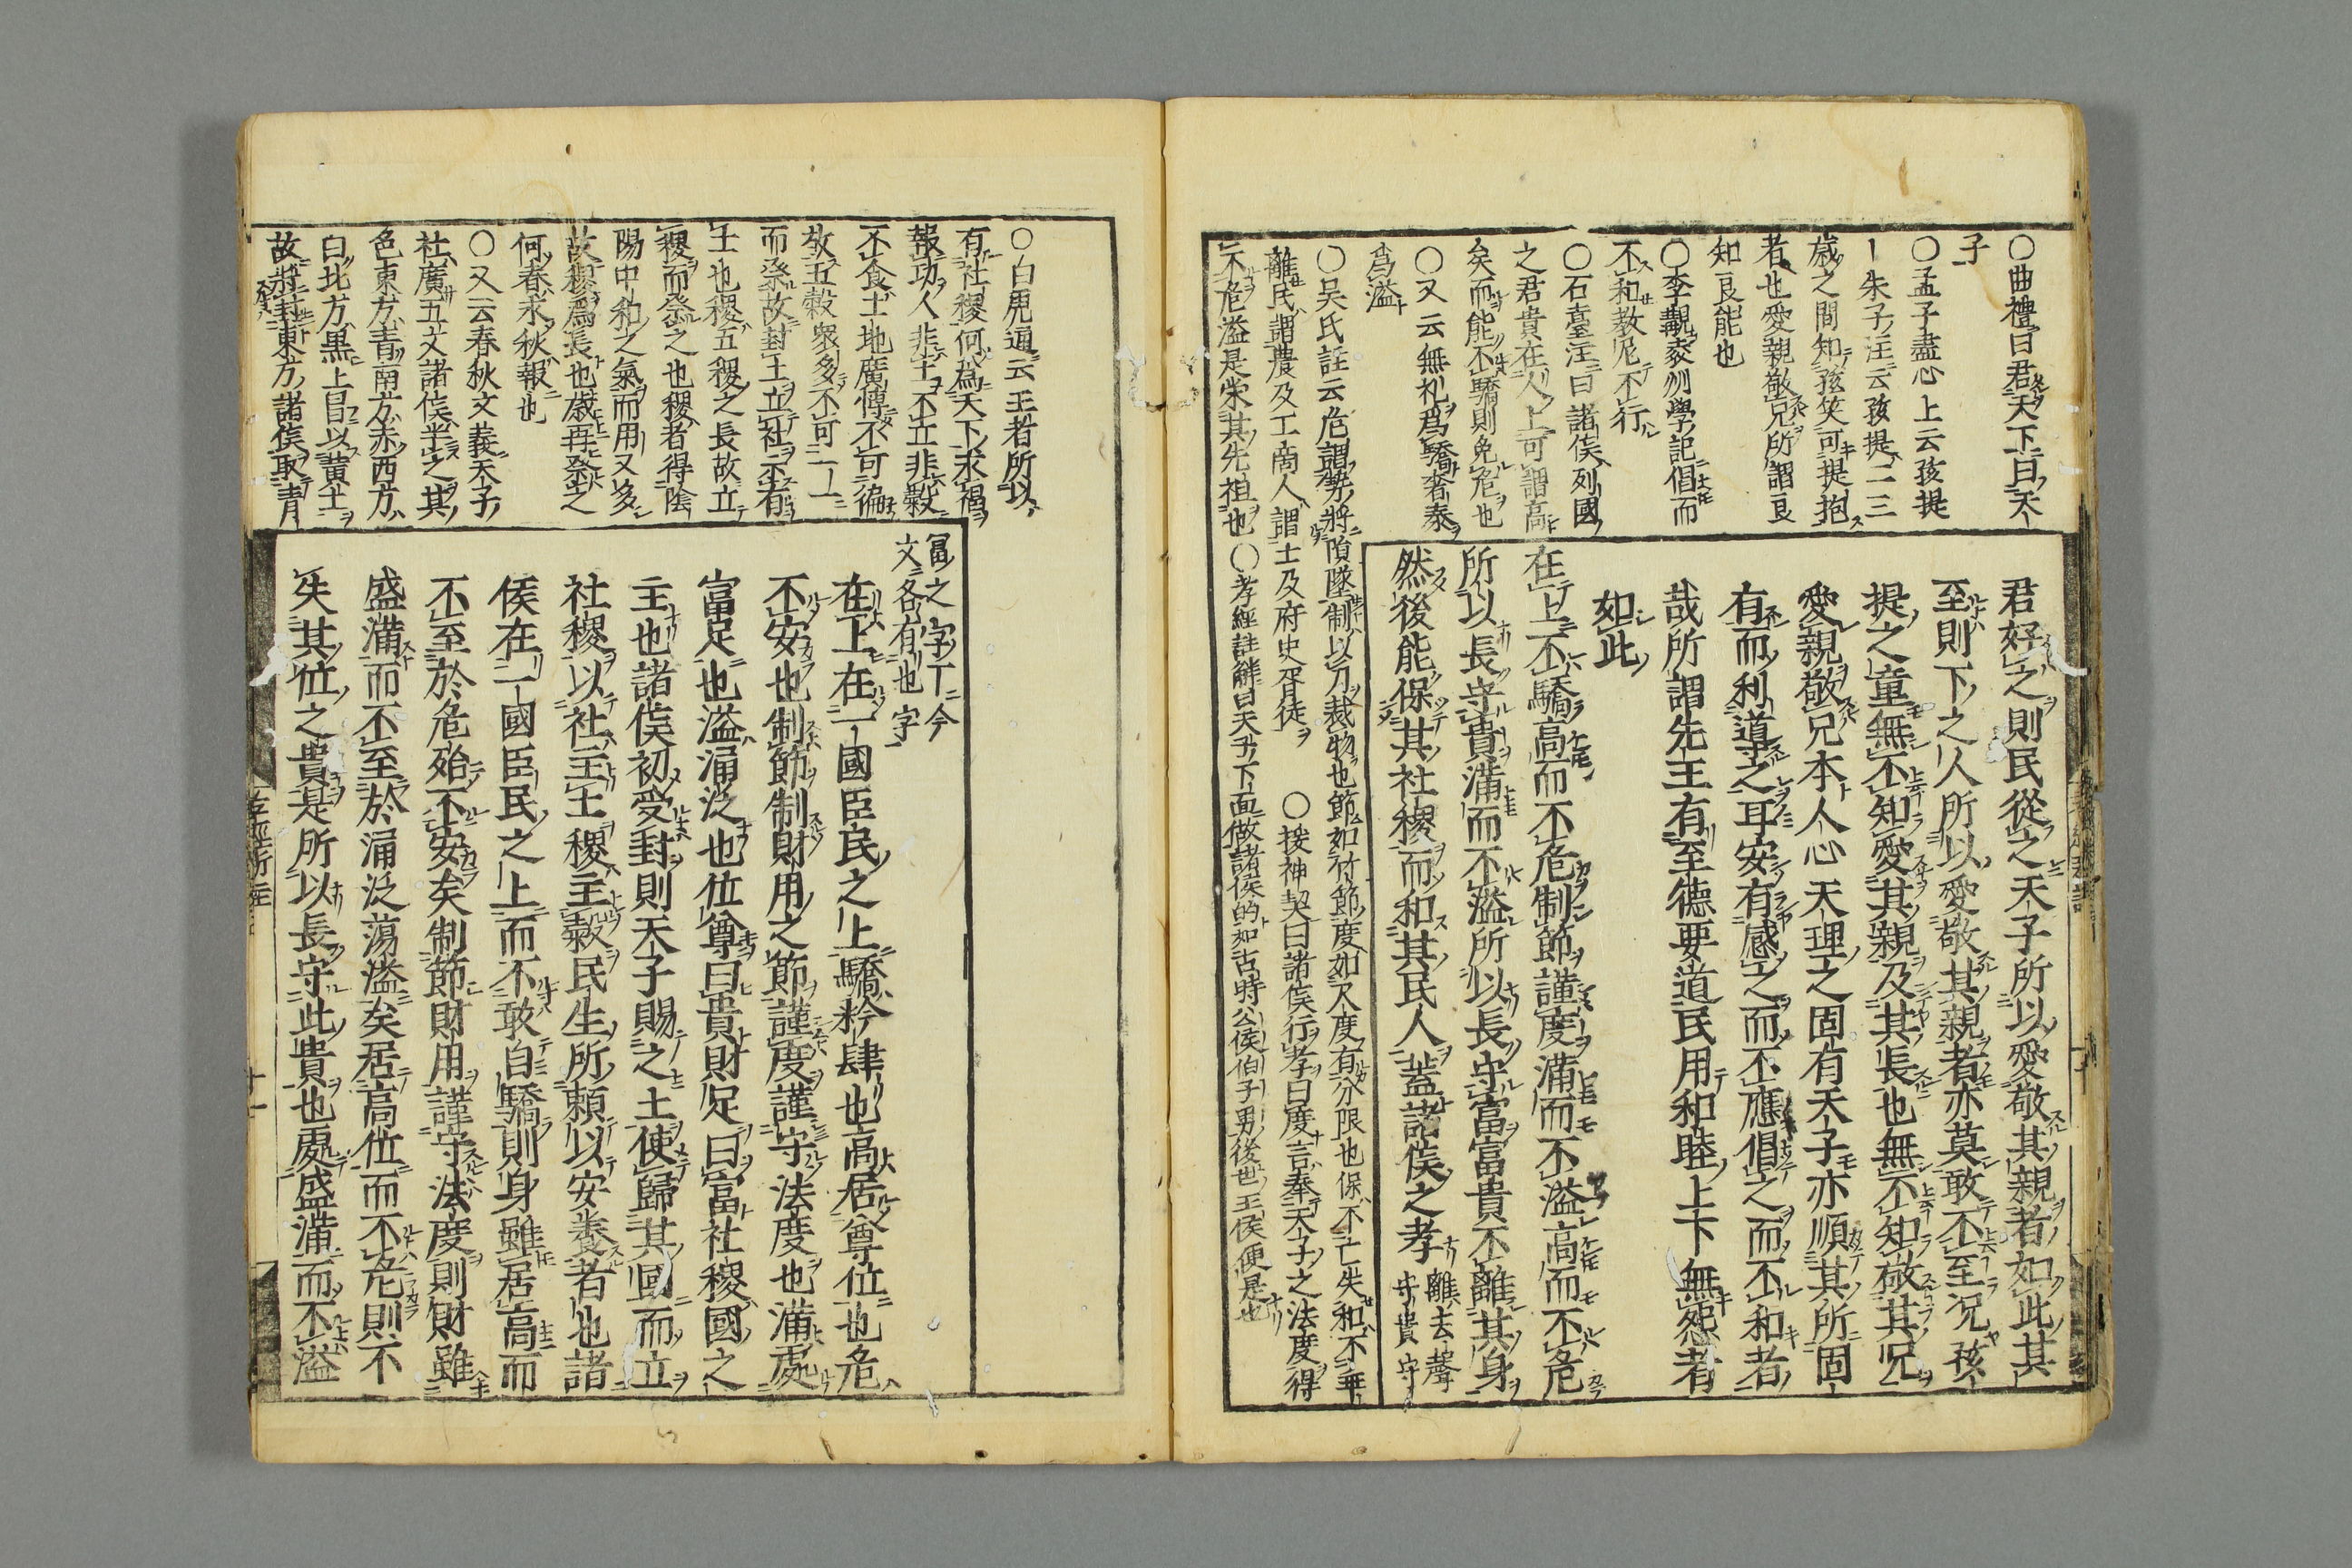 〇曲禮曰君天下曰天
子
〇孟子盡心上云孩提
朱子注云孩提二三
歲之間知孩笑可提抱
者也愛親敬兄所謂良
知良能也
〇李觀麥刈學記倡而
不和教尼不行
〇石臺注曰諸侯列國
之君貴在人上可謂高
矣而能不驕則免危也
〇又云無礼爲驕奢泰
爲溢
君好之則民從之天子所以愛敬其親者如此其
至則下之人所以愛敬其親者亦莫敢不至況孩
提之童無不知愛其親及其長也無不知敬其兄
愛親敬兄本人心天理之固有天子亦順其所固
有而利道之耳安有感之而不應倡之而不和者
哉所謂先王有至德要道民用和睦上下無怨者
如此
在上不驕高而不危制節謹度滿而不溢高而不危
所以長守貴滿而不溢所以長守富富貴不離其身
然後能保其社稷而和其民人蓋諸侯之孝
離去聲
守貴守
〇吳氏註云危謂勢將隕墜制以刀裁物也節如竹節度如尺度有分限也保不亡失和不乖
離民謂農及工商人謂士及府史胥徒
〇援神契曰諸侯行孝曰度言奉天子之法度得
不危溢是榮其先祖也〇孝經註觧曰天子下面做諸侯的如古時公侯伯子男後世王侯便是也
〇白虎通云王者所以
有社稷何爲天下求福
報功人非土不立非穀
不食土地廣博不可徧
敬五穀衆多不可一一
而祭故封土立社示有
土也稷五稷之長故立
稷而祭之也稷者得陰
陽中和之氣而用又多
故稷爲長也歲再祭之
何春求秋報也
〇又云春秋文義天子
社廣五丈諸侯半之其
色東方青南方赤西方
白北方黒上冒以黄土
故將封東方諸侯取青
富之字丁今
文各有也字
在上在一國臣民之上驕矜肆也高居尊位也危
不安也制節制財用之節謹度謹守法度也滿處
富足也溢涌泛也位尊曰貴財足曰富社稷國之
主也諸侯初受封則天子賜之土使歸其國而立
社稷以社主土稷主穀民生所頼以安養者也諸
侯在一國臣民之上而不敢自驕則身雖居高而
不至於危殆不安矣制節財用謹守法度則財雖
盛滿而不至於涌泛蕩溢矣居高位而不危則不
失其位之貴是所以長守此貴也處盛滿而不溢
十一